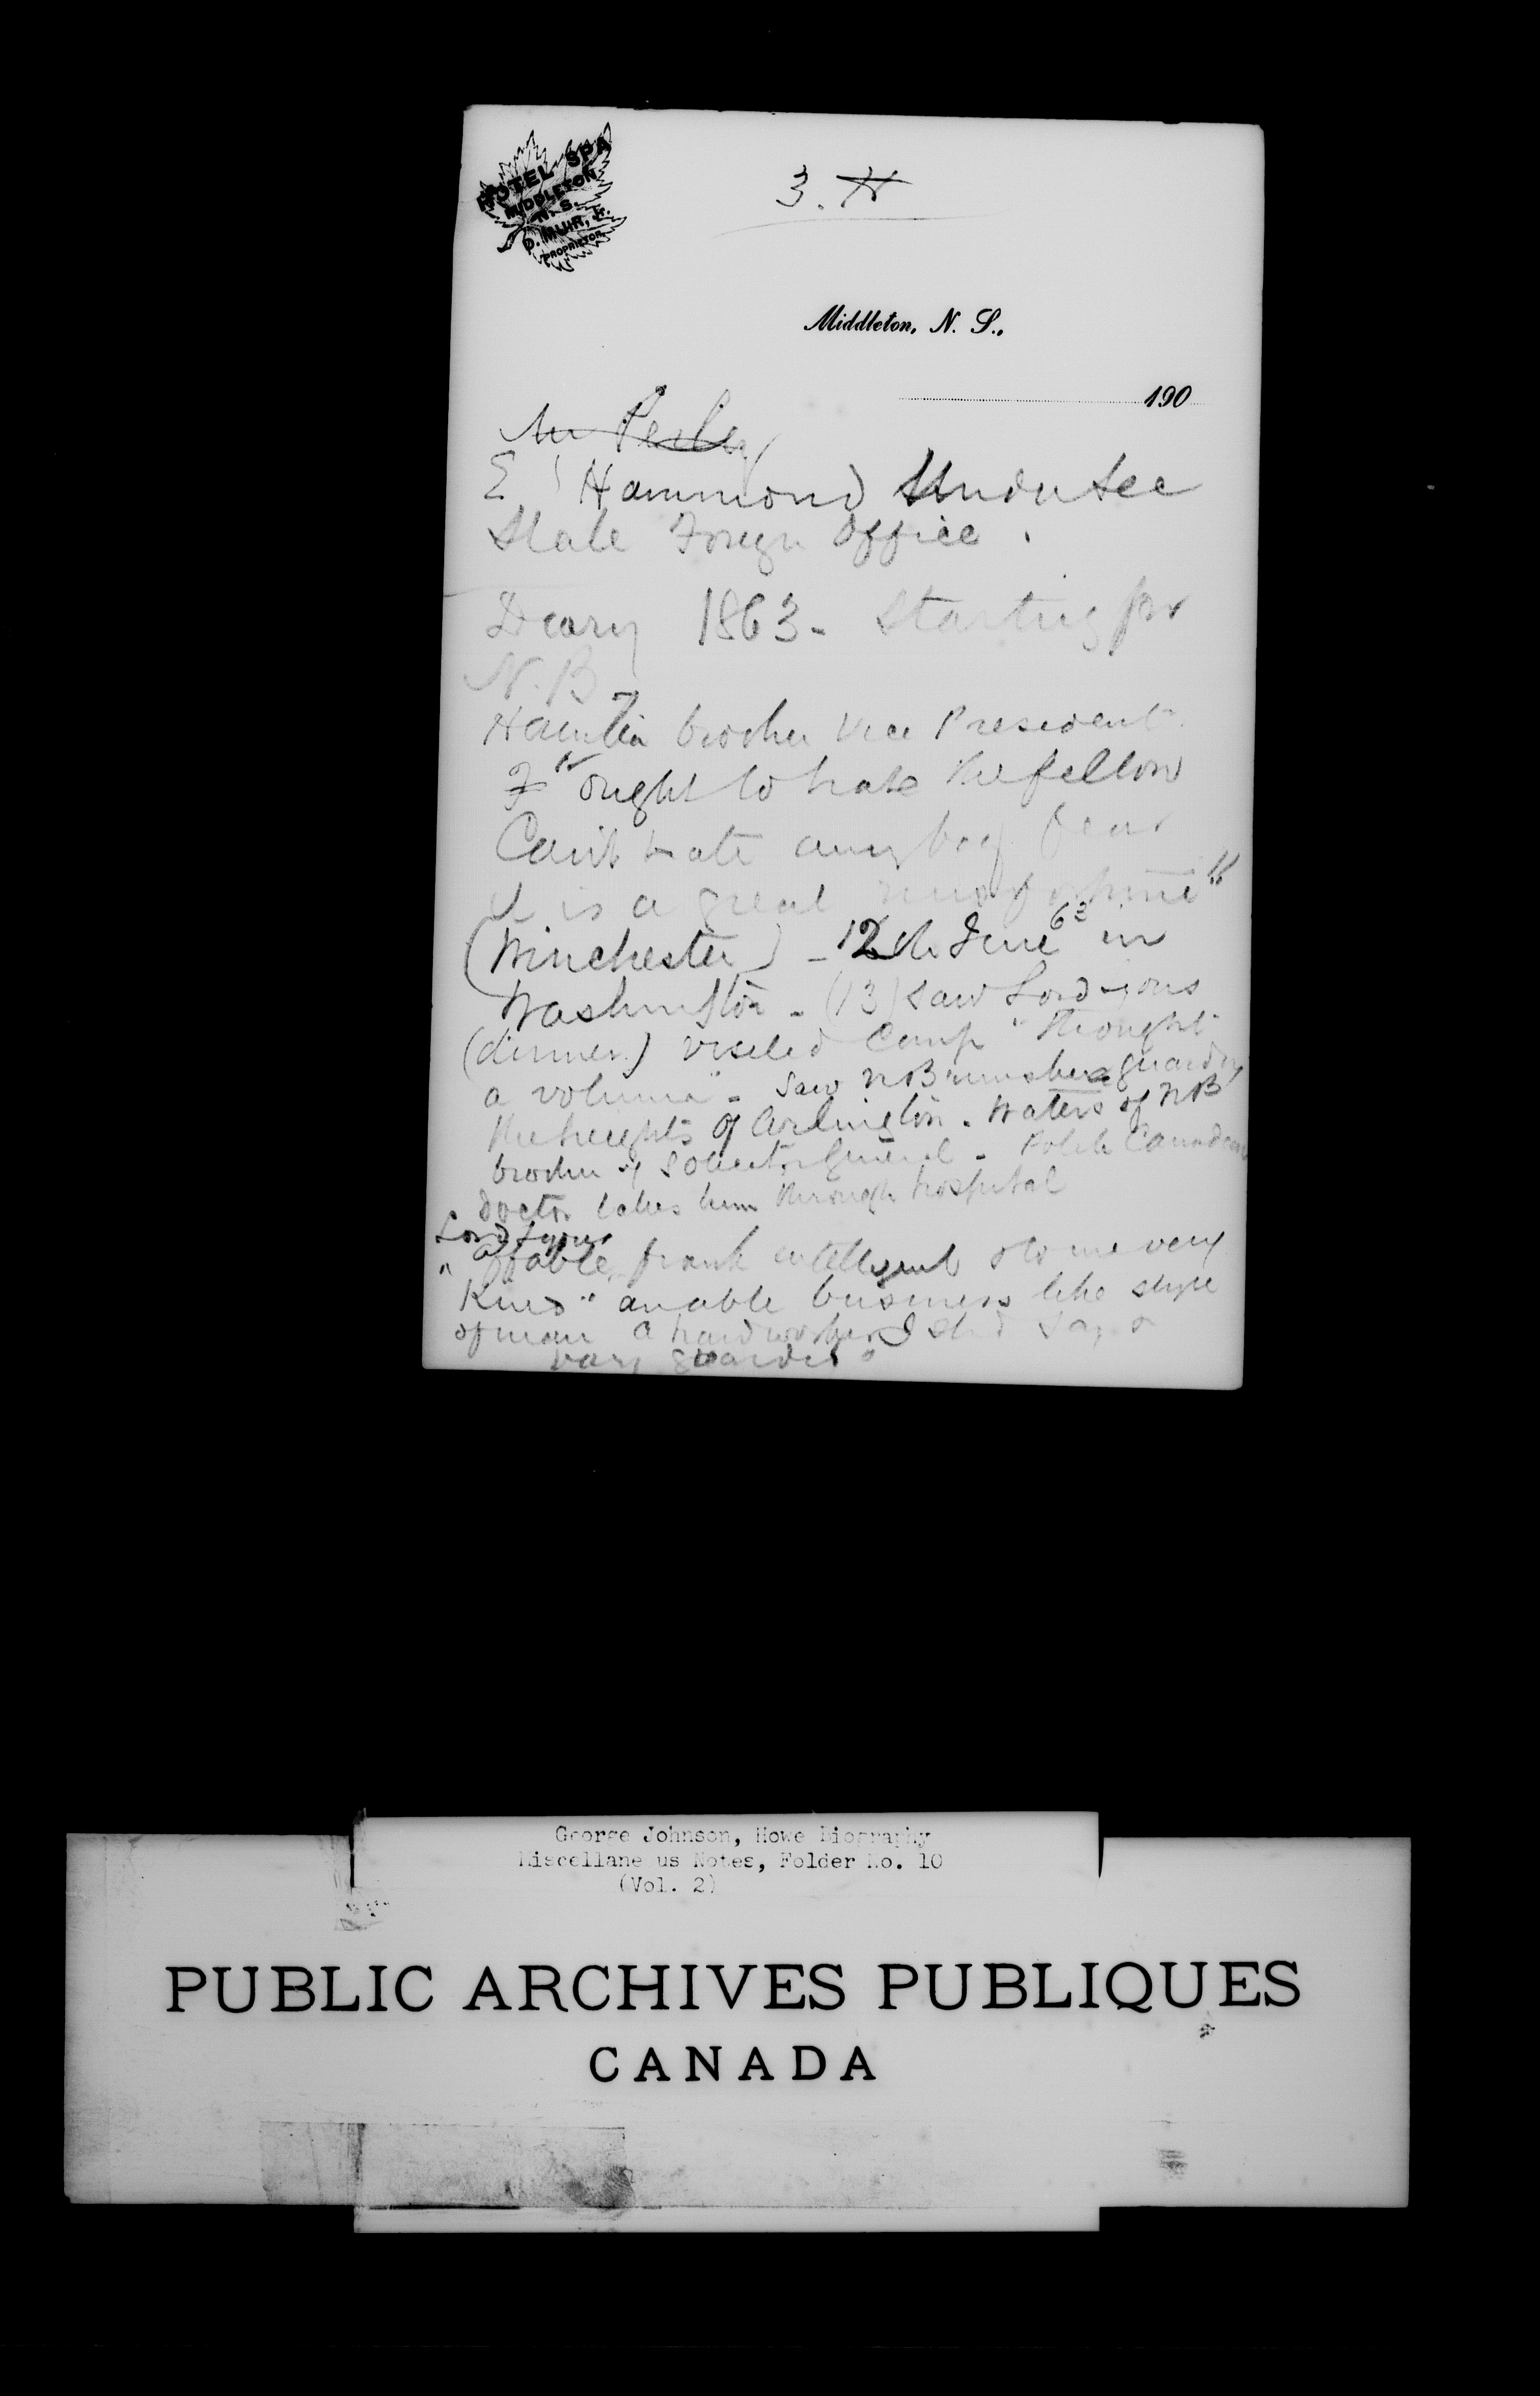 HOTEL SPA
MIDDLETON
N. S.
D. MUIR, Jr.
PROPRIETOR.
3. H
Middleton, N. S.,
190
Mr Perley
E Hammond Under Sec
State Foreign Office.
Deary 1863 - Starting for
N.B
Hamlin brother Vice President
I ought to hate the fellow
Can't hate any body Fear
it is a great misfortune"
(Winchester) - 12th June 63 in
Washington - (13) Saw Lord Lyons
(dinner) visited Camp "thought
a volume" - Saw N B guarding
the heights of Arlington. Waters of N B
brother of Solicitor General - Canadian
doctor takes him through hospital
Lord Lyons
"affable, frank intelligent & to me very
Kind" an able business like style
of man a hard worker I shd say &
very guarded"
George Johnson, Howe Biography
Miscellane us Notes, Folder No. 10
(Vol. 2)
PUBLIC ARCHIVES PUBLIQUES
CANADA